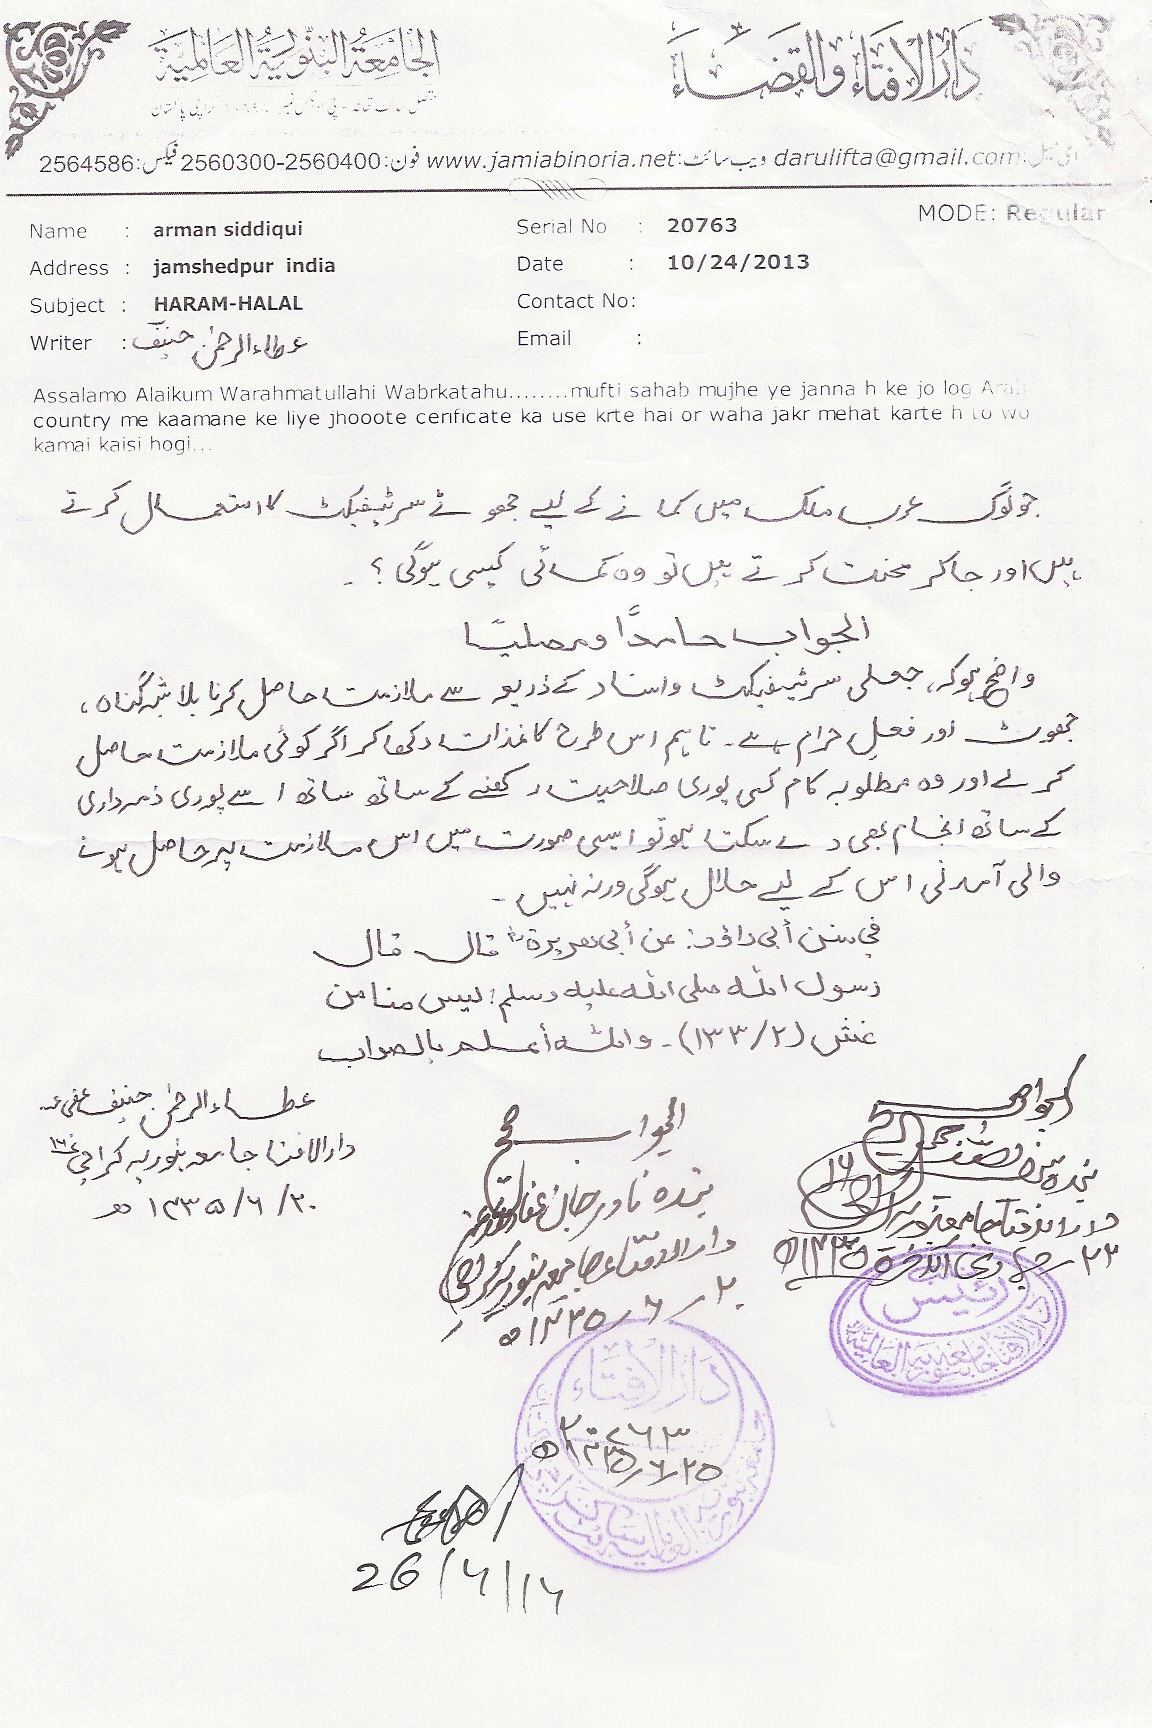 دَارُالاِفتَاء وَالقَضَاء
الجَامِعَةُ البِنُّورِيَّةُ العَالَمِيَّة
ای میل: darulifta@gmail.com ویب سائٹ: www.jamiabinoria.net فون: 2560300-2560400 فیکس: 2564586
MODE: Regular
Name : arman siddiqui Serial No : 20763
Address : jamshedpur india Date : 10/24/2013
Subject : HARAM-HALAL Contact No:
Writer : عطاء الرحمٰن حنیف Email :
Assalamo Alaikum Warahmatullahi Wabrkatahu........mufti sahab mujhe ye janna h ke jo log Arab
country me kaamane ke liye jhooote cerificate ka use krte hai or waha jakr mehat karte h to wo
kamai kaisi hogi...
جو لوگ عرب ملک میں کمانے کے لیے جھوٹے سرٹیفیکٹ کا استعمال کرتے
ہیں اور جاکر محنت کرتے ہیں تو وہ کمائی کیسی ہوگی؟۔
الجواب حامدًا ومصلیًا
واضح ہوکہ، جعلی سرٹیفیکٹ واسناد کے ذریعہ سے ملازمت حاصل کرنا بلا شبہ گناہ،
جھوٹ اور فعلِ حرام ہے۔ تاہم اس طرح کاغذات دکھا کر اگر کوئی ملازمت حاصل
کرلے اور وہ مطلوبہ کام کی پوری صلاحیت رکھنے کے ساتھ ساتھ اسے پوری ذمہ داری
کے ساتھ انجام بھی دے سکتا ہو تو ایسی صورت میں اس ملازمت پر حاصل ہونے
والی آمدنی اس کے لیے حلال ہوگی ورنہ نہیں۔
في سنن أبي داؤد: عن أبي هريرةؓ قال قال
رسول الله صلى الله عليه وسلم: ليس منا من
غش (۲/۱۳۳)۔ والله أعلم بالصواب
عطاء الرحمٰن حنیف عفی عنہ
دارالافتاء جامعہ بنوریہ کراچی ۱۶
۲۰/۶/۱۴۳۵ھ
الجواب صحیح
بندہ نادر جان عفا اللہ عنہ
دارالافتاء جامعہ بنوریہ کراچی
۲۰/۶/۱۴۳۵ھ
الجواب صحیح
بندہ
دارالافتاء جامعہ بنوریہ کراچی ۱۶
۲۲ جمادی الآخرۃ ۱۴۳۵ھ
رئیس
دارالافتاء جامعہ بنوریہ العالمیہ
دَارُالاِفتَاء
۲۰۷۶۳
۲۵/۶/۱۴۳۵ھ